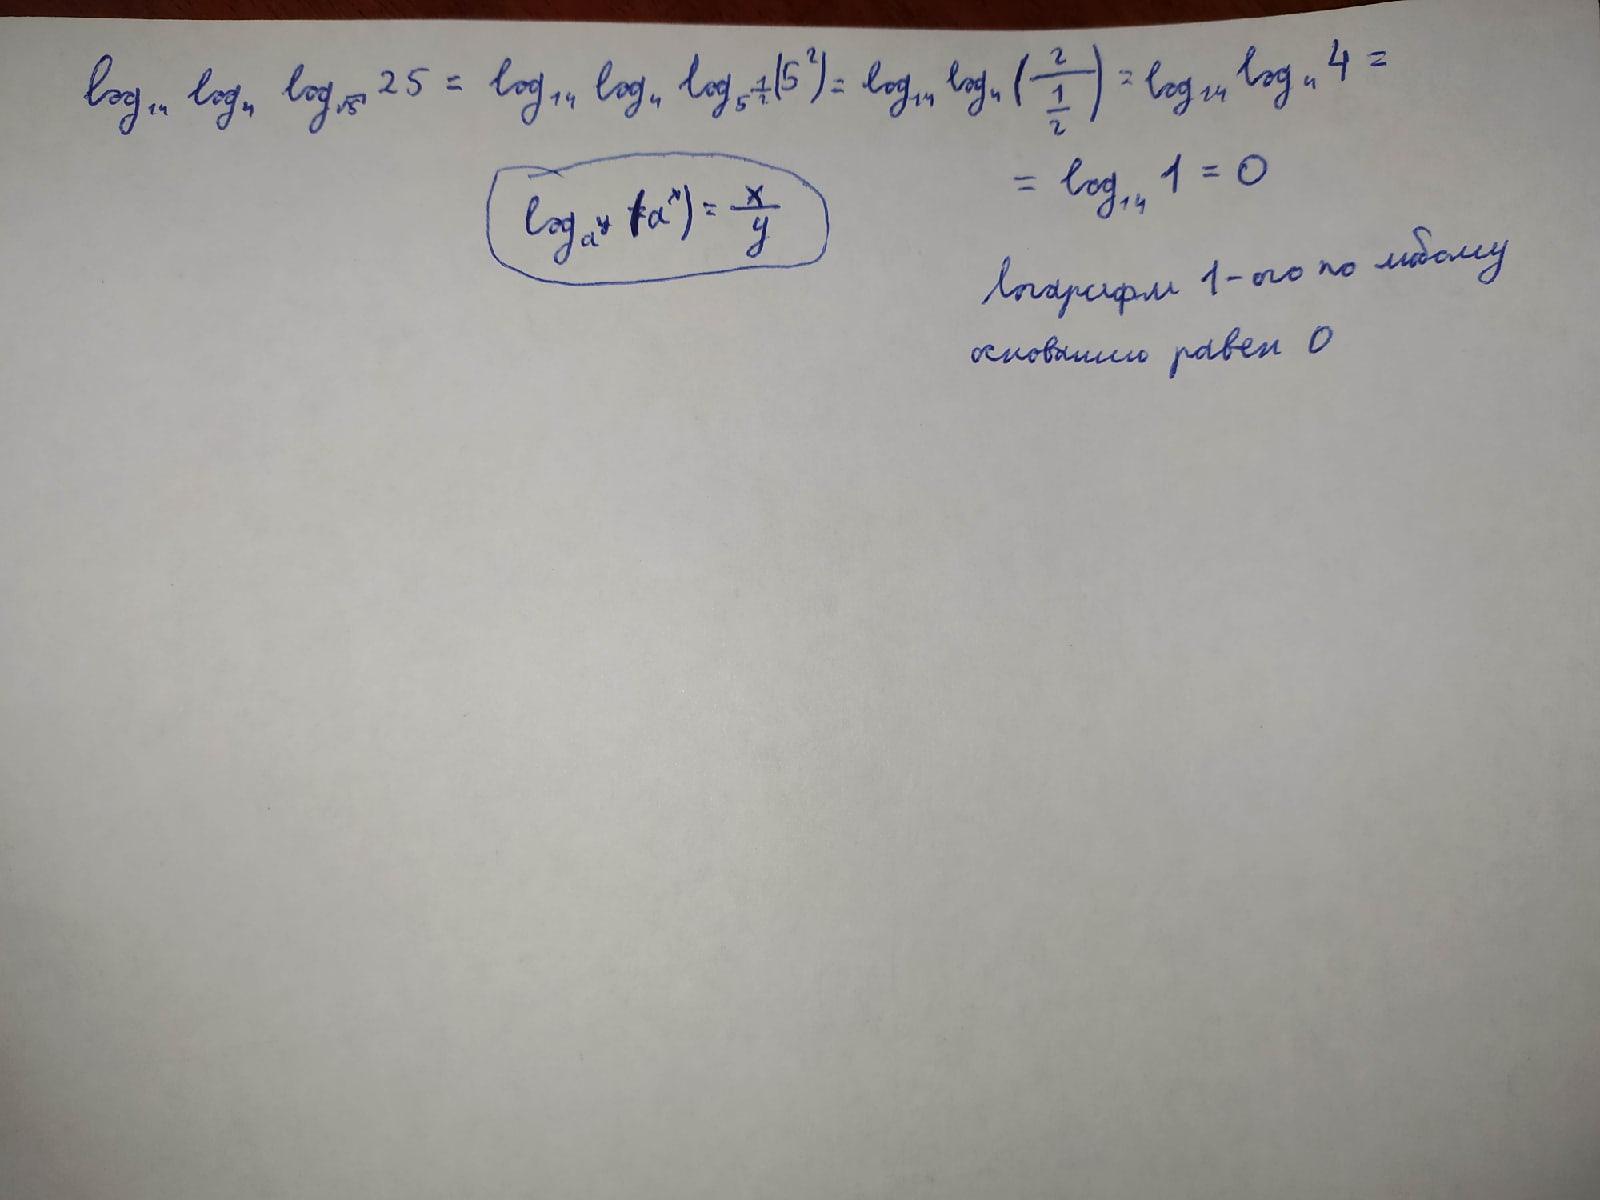 log₁₄ log₄ log_√5 25 = log₁₄ log₄ log_5^(1/2) (5²) = log₁₄ log₄ (2/(1/2)) = log₁₄ log₄ 4 =
= log₁₄ 1 = 0
log_a^y (a^x) = x/y
логарифм 1-ого по любому
основанию равен 0